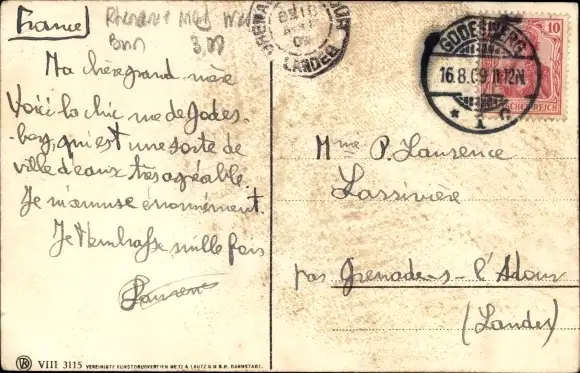 France
Bonn 3,00
Ma chère grand mère
Voici la chic vue de Godes-
berg, qui est une sorte de
ville d'eaux très agréable.
Je m'amuse énormément.
Je t'embrasse mille fois
Laurence
GRENADE
LANDES
GODESBERG
16.8.09.11-12N.
* 1 c.
10
DEUTSCHES REICH
Mme P. Laurence
Lassivière
par Grenade-s-l'Adour
(Landes)
VIII 3115 VEREINIGTE KUNSTDRUCKEREIEN METZ & LAUTZ G.M.B.H. DARMSTADT.